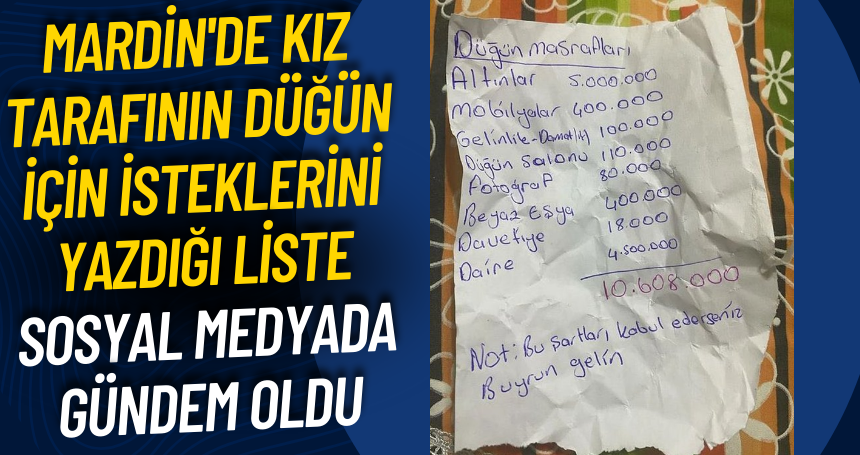 MARDİN'DE KIZ
TARAFININ DÜĞÜN
İÇİN İSTEKLERİNİ
YAZDIĞI LİSTE
SOSYAL MEDYADA
GÜNDEM OLDU
Düğün masrafları
Altınlar 5.000.000
Mobilyalar 400.000
Gelinlik-Damatlık 100.000
Düğün Salonu 110.000
Fotoğraf 80.000
Beyaz Eşya 400000
Davetiye 18.000
Daire 4.500.000
10.608.000
Not: Bu şartları kabul ederseniz
Buyrun gelin